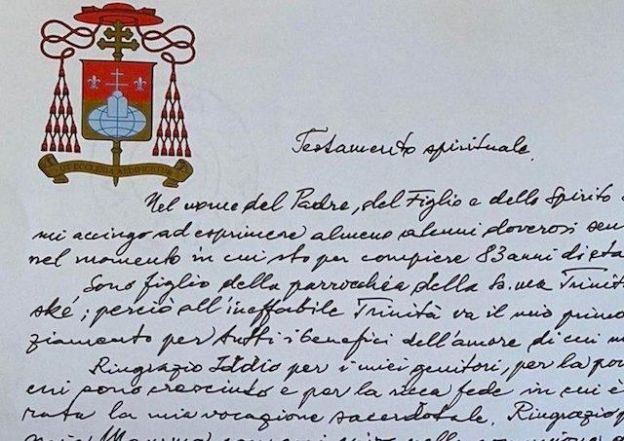 UT ECCLESIA AEDIFICETUR
Testamento spirituale.
Nel nome del Padre, del Figlio e dello Spirito
mi accingo ad esprimere almeno alcuni doverosi sen
nel momento in cui sto per compiere 83 anni di eta
Sono figlio della parrocchia della Ss.ma Trinit
ské; perciò all'ineffabile Trinità va il mio primo
ziamento per tutti i benefici dell'amore di cui m
Ringrazio Iddio per i miei genitori, per la pov
cui sono cresciuto e per la ricca fede in cui è
rata la mia vocazione sacerdotale. Ringrazio p
mia Mamma